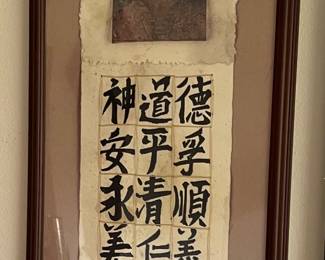 德孚順
道平清仁
神安永